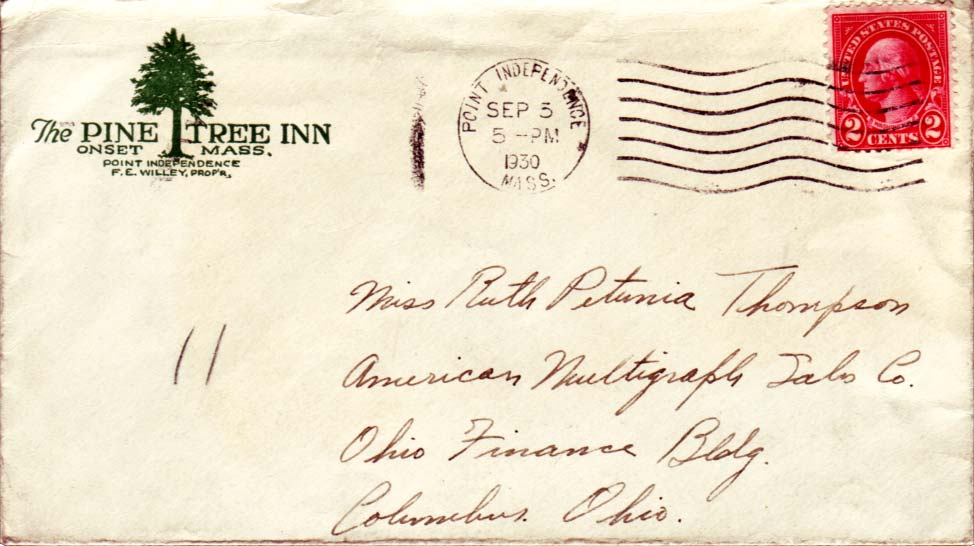 The PINE TREE INN
ONSET MASS.
POINT INDEPENDENCE
F. E. WILLEY, PROP'R,
POINT INDEPENDENCE
SEP 3
5 - PM
1930
MASS.
UNITED STATES POSTAGE
2 CENTS 2
11
Miss Ruth Petunia Thompson
American Multigraph Sales Co.
Ohio Finance Bldg.
Columbus. Ohio.